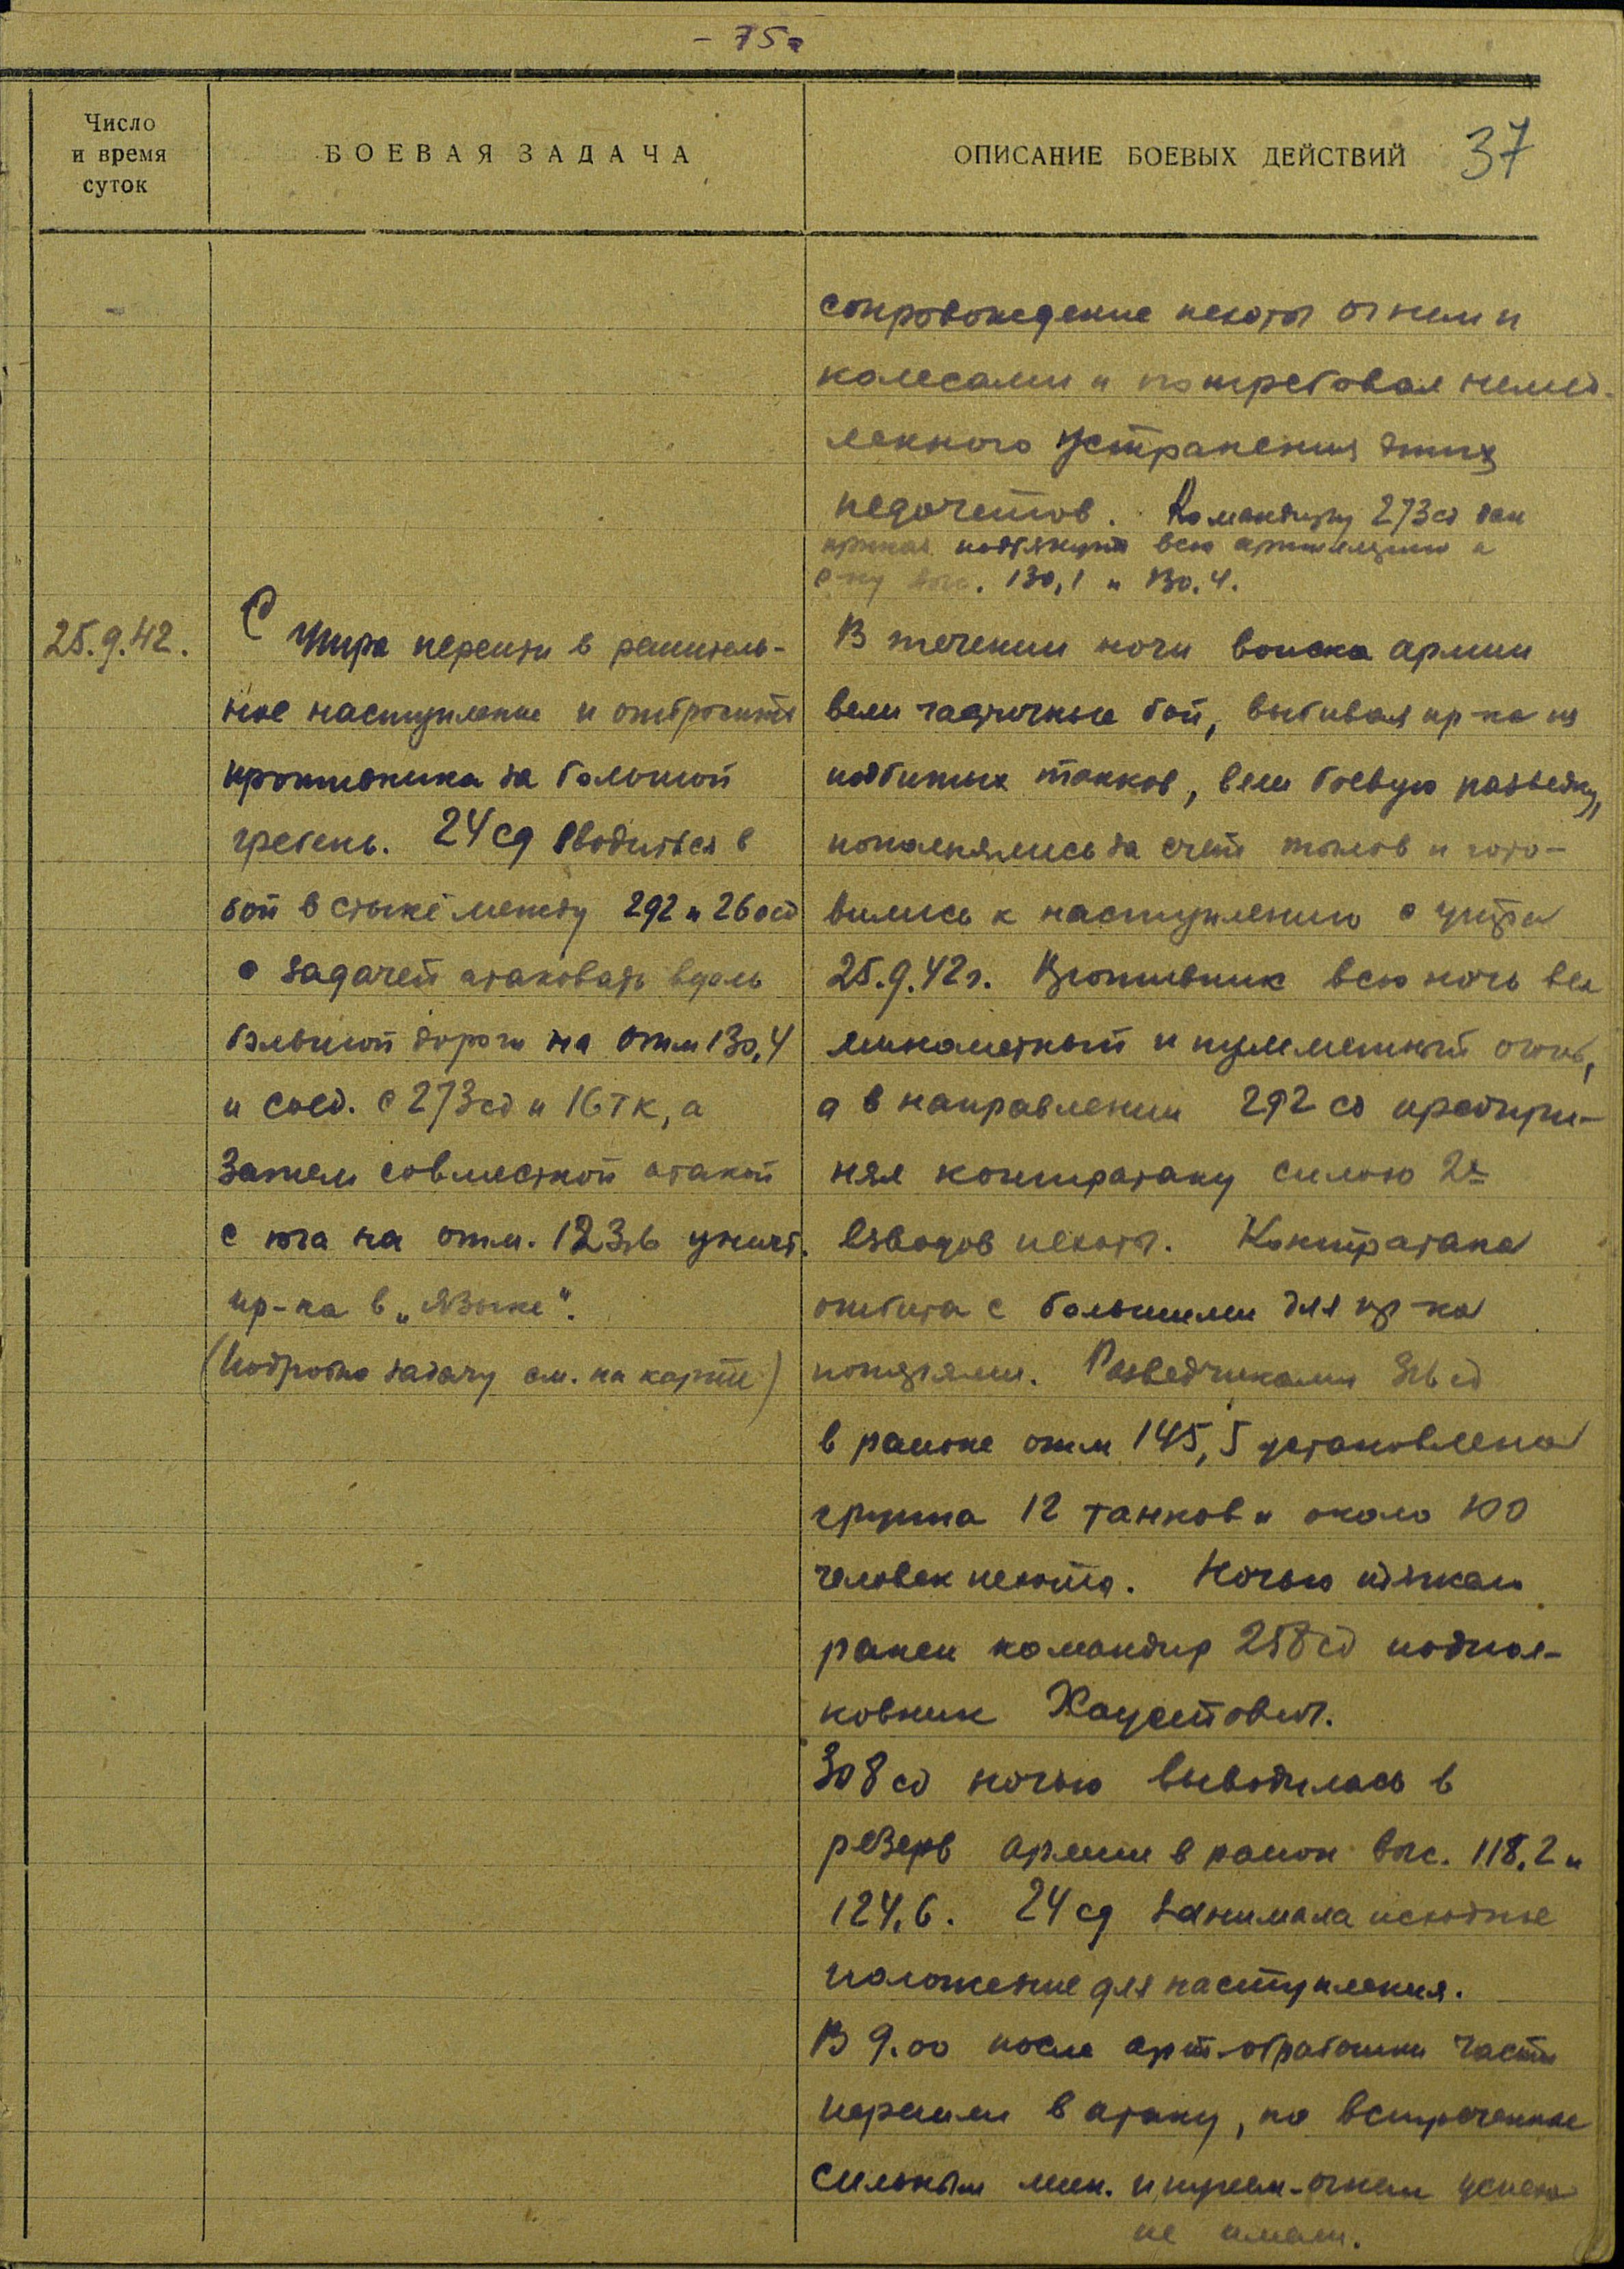 - 75 -
Число
и время
суток
БОЕВАЯ ЗАДАЧА
ОПИСАНИЕ БОЕВЫХ ДЕЙСТВИЙ
37
25.9.42.
С утра перейти в решитель-
ное наступление и отбросить
противника за большой
гребень. 24 сд вводиться в
бой в стыке между 292 и 260 сд
с задачей атаковать вдоль
большой дороги на отм 130,4
и соед. с 273 сд и 16 тк, а
затем совместной атакой
с юга на отм. 123,6 уничт.
пр-ка в „Языке".
(Подробно задачу см. на карте)
сопровождение пехоты огнем и
колесами и потребовал немед-
ленного устранения этих
недочетов. Командиру 273 сд дан
приказ подтянуть всю артиллерию к
выс. 130,1 и 130.4.
В течении ночи войска армии
вели частичные бои, выбивая пр-ка из
подбитых танков, вели боевую разведку,
пополнялись за счет тылов и гото-
вились к наступлению с утра
25.9.42г. Противник всю ночь вел
минометный и пулеметный огонь,
а в направлении 292 сд предпри-
нял контратаку силою 2х
взводов пехоты. Контратака
отбита с большими для пр-ка
потерями. Разведчиками 316 сд
в районе отм 145,5 установлена
группа 12 танков и около 100
человек пехоты. Ночью тяжело
ранен командир 258 сд подпол-
ковник Хаустович.
308 сд ночью выводилась в
резерв армии в район выс. 118.2 и
124.6. 24 сд занимала исходное
положение для наступления.
В 9.00 после арт-обработки части
перешли в атаку, но встреченные
сильным мин. и пулем-огнем успеха
не имели.